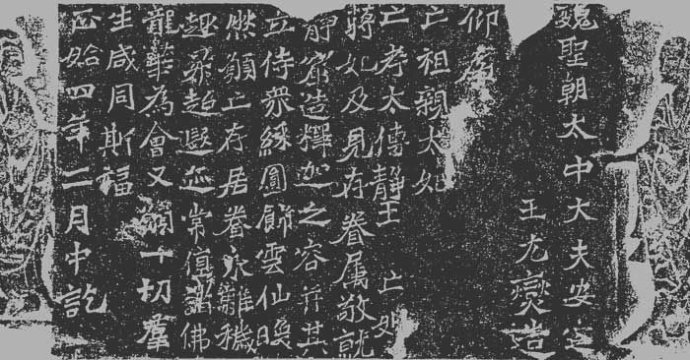 魏聖朝太中大夫安定
王元燮造
仰為
亡祖親太妃
亡考太傅靜王　亡妣
蔣妃及見存眷屬敬就
靜窟造釋迦之容并其
立侍衆綵圓飾雲仙煥
然願亡存居眷永離穢
趣昇超遐迹常值諸佛
龍華為會又願一切羣
生咸同斯福
正始四年二月中訖